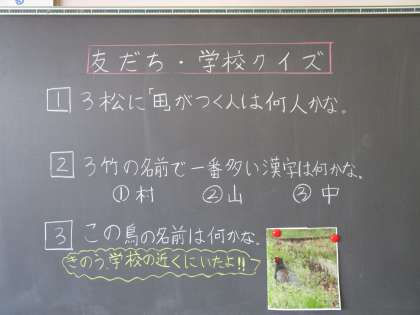 友だち・学校クイズ
1 3松に「田」がつく人は何人かな。
2 3竹の名前で一番多い漢字は何かな。
①村 ②山 ③中
3 この鳥の名前は何かな。
きのう、学校の近くにいたよ!!